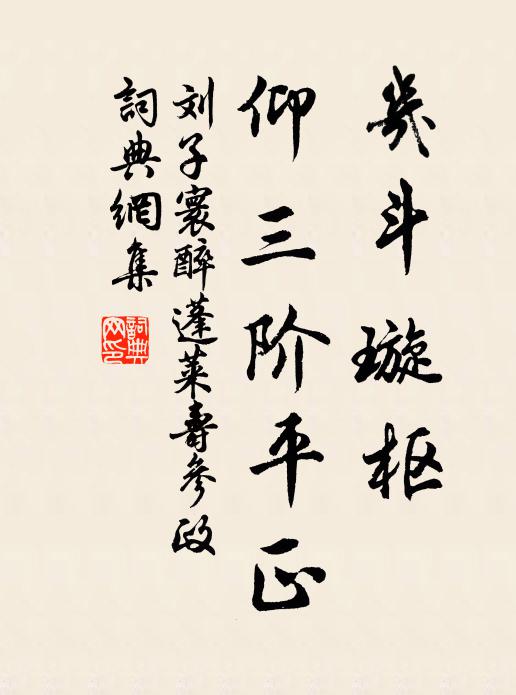 幾斗璇枢
仰三阶平正
刘子寰醉蓬莱寿参政
詞典網集
詞典网印